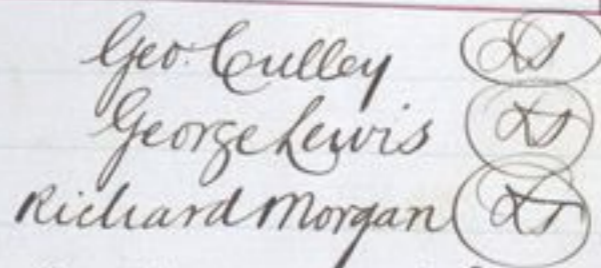 Geo. Culley LS
George Lewis LS
Richard Morgan LS